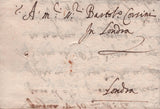 A m.r N.r Bartol.o Corsini
In Londra
Londra